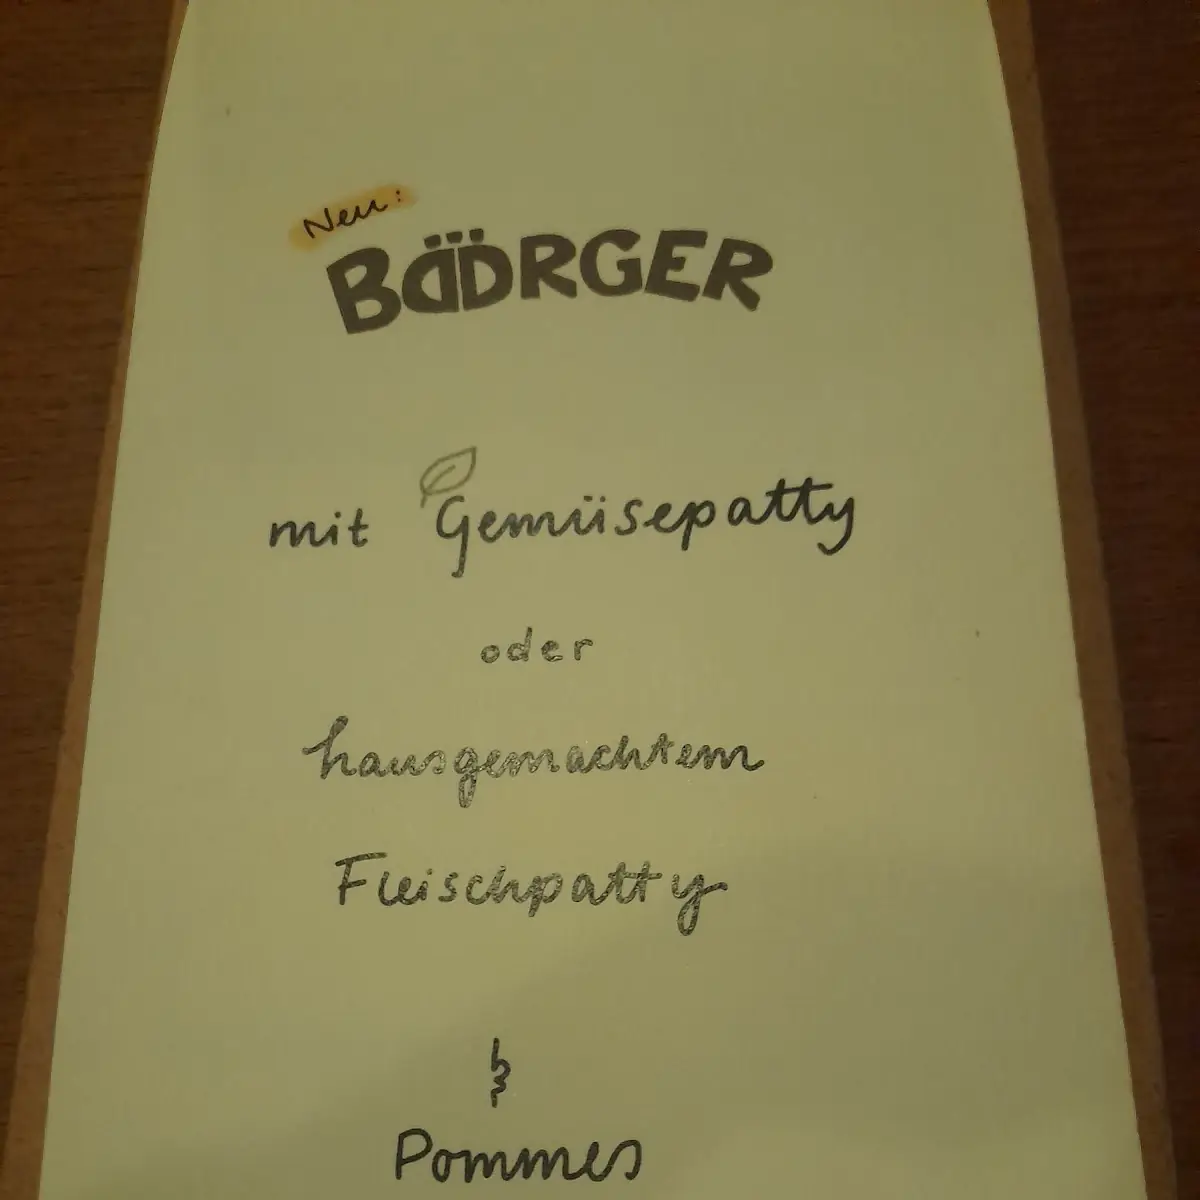 Neu:
BÄÖRGER
mit Gemüsepatty
oder
hausgemachtem
Fleischpatty
&
Pommes